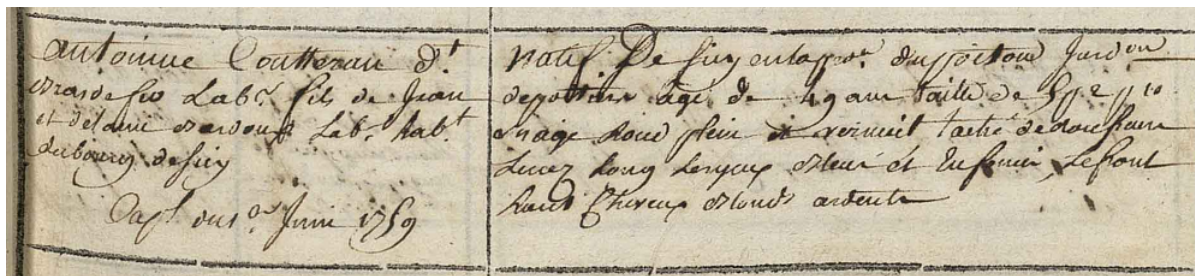 Antoinne Coutteran d.t
Bras de fer Lab.r fils de Jean
et de Lab.r hab.t
du bourg de Siry
Cap.l du 1.er Juin 1759
Natif De Siry en la pro.ce du poitou Jurd.on
de poitiers agé de 49 ans taille de 5 p 2 p 10
visage Rond plein et vermeil taché de rousseur
Lenez Long Lesyeux bleus et Enfoncé, Lefront
haut Cheveux blonds ardents